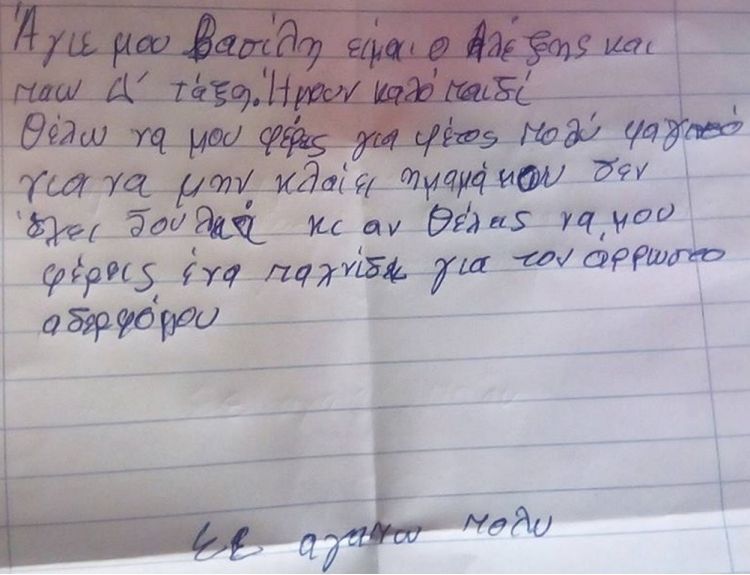 Άγιε μου Βασίλη είμαι ο Αλέξης και
παω Δ' τάξη. Ήμουν καλό παιδί
Θέλω να μου φέρεις για φέτος πολύ φαγητό
για να μην κλαίει η μαμά μου δεν
έχει δουλειά κι αν θέλεις να μου
φέρεις ένα παχνίδι για τον άρρωστο
αδερφό μου
Σε αγαπω πολυ